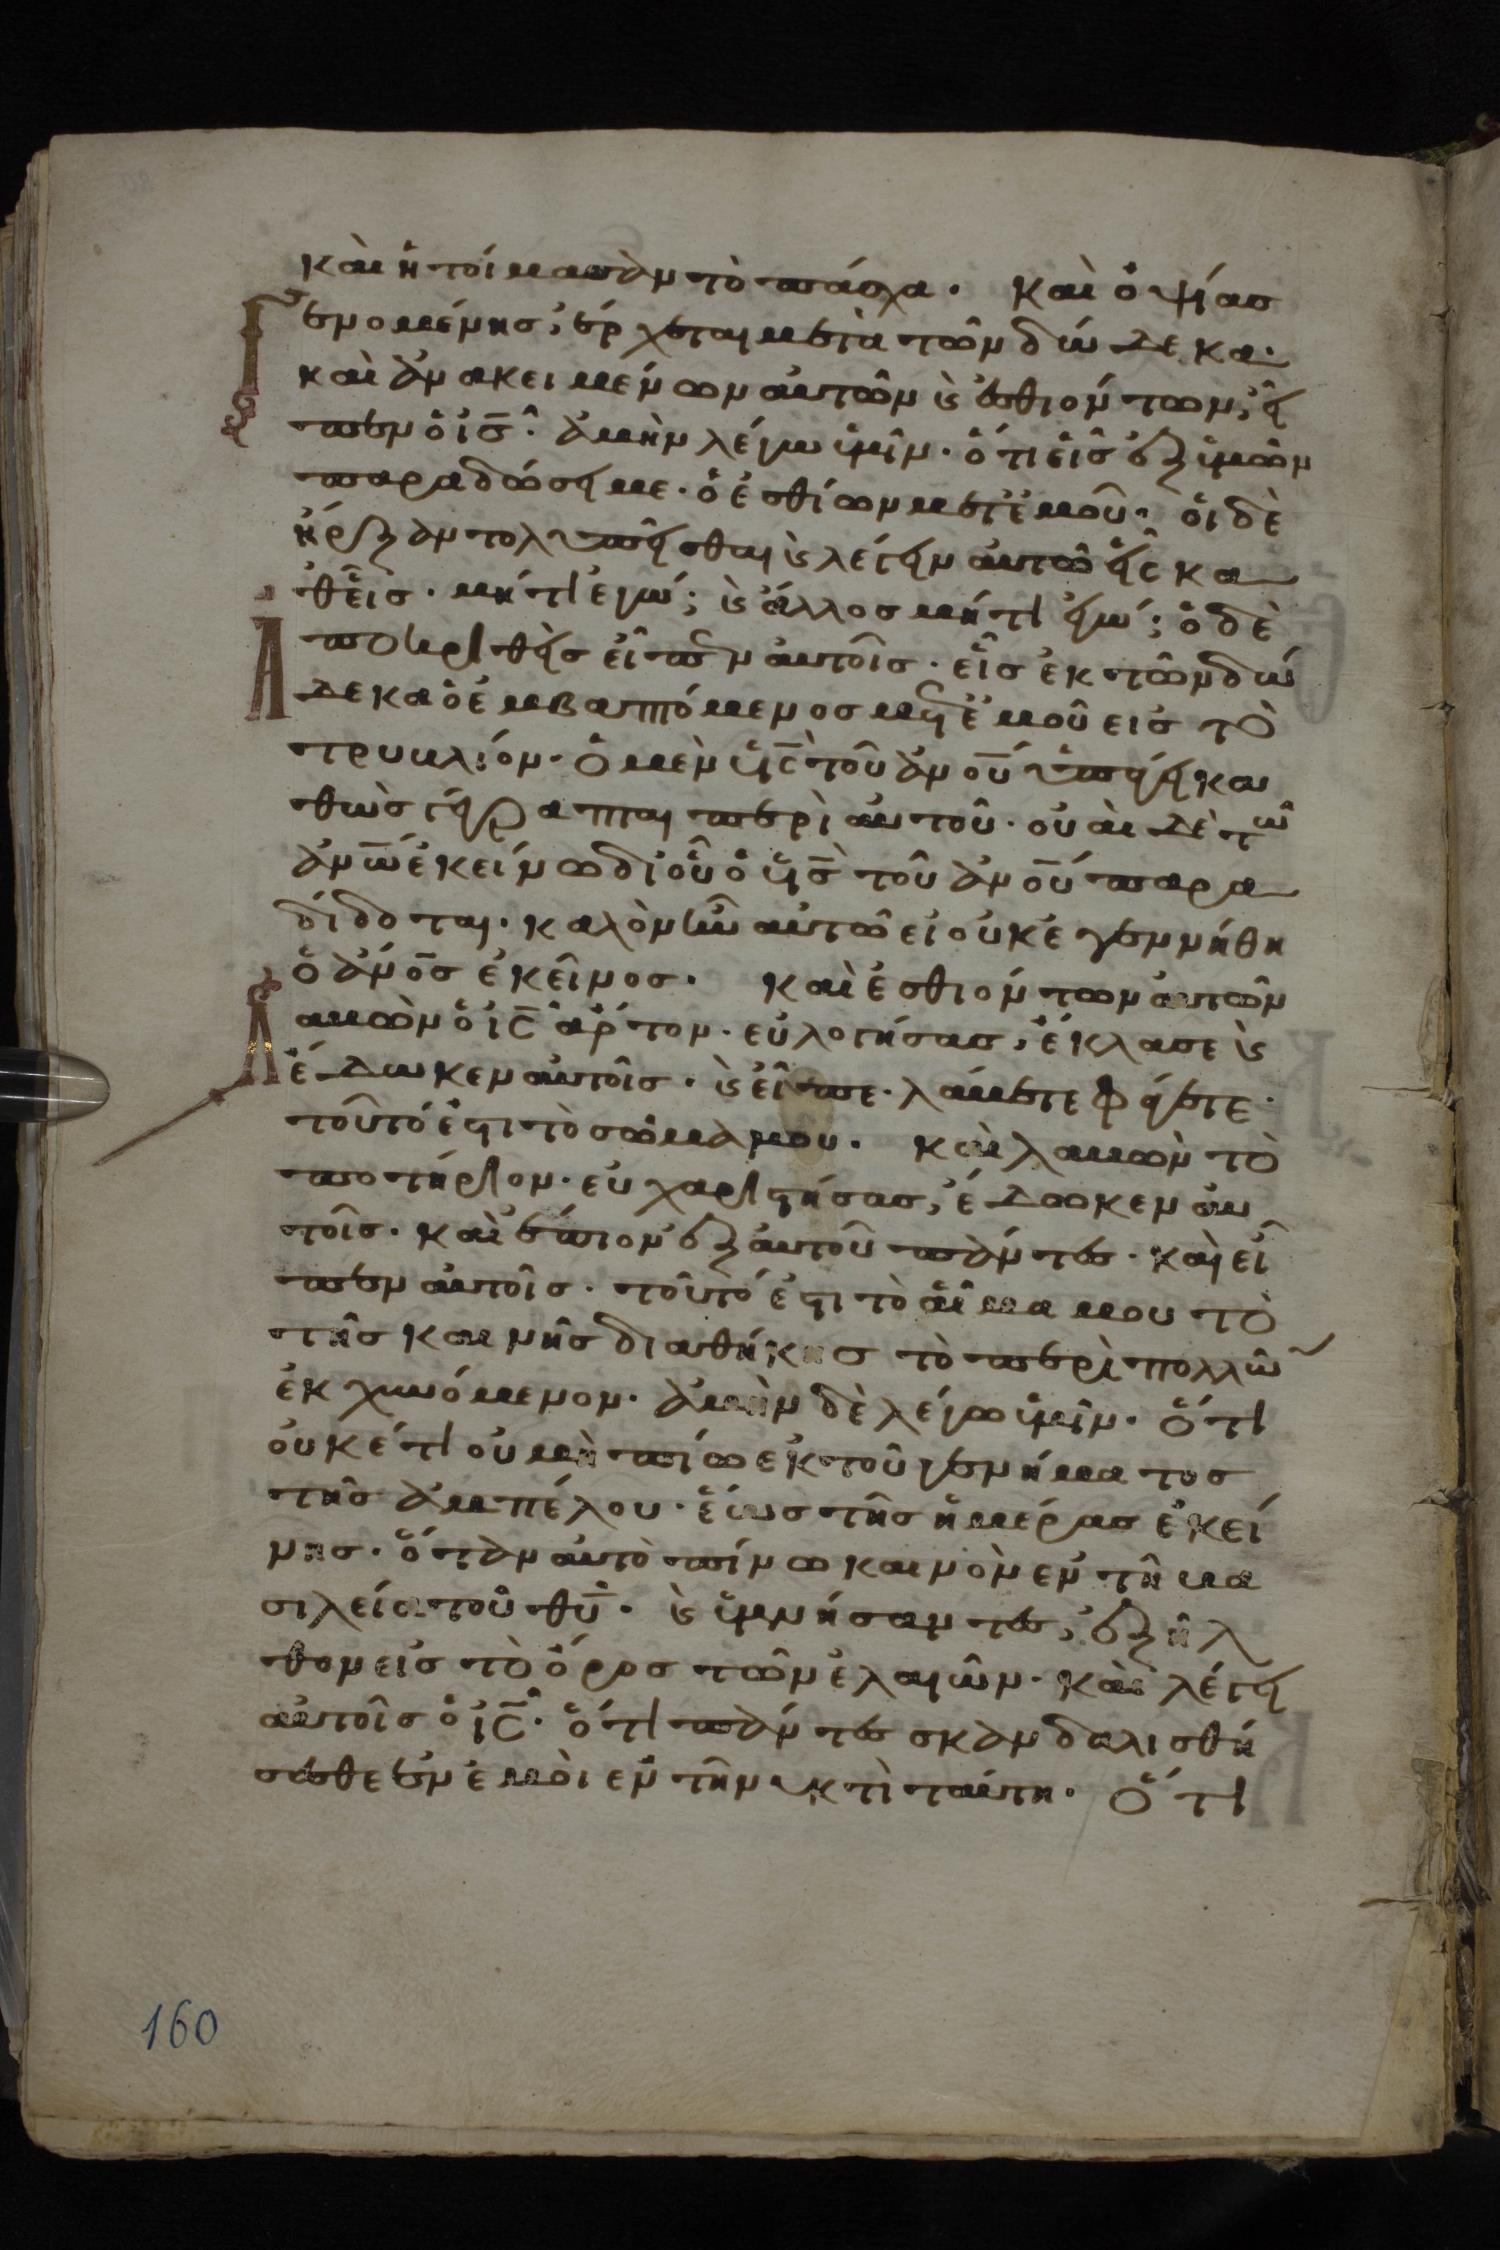 καὶ ἡτοίμασαν τὸ πάσχα. Καὶ ὀψίας
Γενομένης, ἔρχεται μετὰ τῶν δώδεκα.
καὶ ἀνακειμένων αὐτῶν κ̀ ἐσθιόντων, εἶ
πεν ὁ ις̅. ἀμὴν λέγω ὑμῖν. ὅτι εἷς ἐξ ὑμῶν
παραδώσει με. ὁ ἐσθίων μετ᾽ ἐμοῦ. οἱ δὲ
ἤρξαντο λυπεῖσθαι κ̀ λέγειν αὐτῶ εἷς κα
θεῖς. μήτι ἐγώ; κ̀ ἄλλος μήτι ἐγώ; ὁ δὲ
Ἀποκριθεὶς εἶπεν αὐτοῖς. εἷς ἐκ τῶν δώ
δεκα ὁ ἐμβαπτόμενος μετ᾽ ἐμοῦ εἰς τὸ
τρυβλίον. Ὁ μὲν υι̅ς̅ τοῦ ἀνου̅ ὑπάγει κα
θὼς γέγραπται περὶ αὐτοῦ. οὐαὶ δὲ τῶ
ἀνω̅ ἐκείνω δι᾽ οὗ ὁ υι̅ς̅ τοῦ ἀνου̅ παρα
δίδοται. καλὸν ἦν αὐτῶ εἰ οὐκ ἐγεννήθη
ὁ ἀνος̅ ἐκεῖνος. Καὶ ἐσθιόντων αὐτῶν
Λαβὼν ὁ ις̅ ἄρτον. εὐλογήσας, ἔκλασε κ̀
ἔδωκεν αὐτοῖς. κ̀ εἶπε. λάβετε φάγετε.
τοῦτό ἐστι τὸ σῶμά μου. Καὶ λαβὼν τὸ
ποτήριον. εὐχαριστήσας, ἔδωκεν αὐ
τοῖς. καὶ ἔπιον ἐξ αὐτοῦ πάντες. καὶ εἶ
πεν αὐτοῖς. τοῦτό ἐστι τὸ αἷμα μου τὸ
τῆς καινῆς διαθήκης τὸ περὶ πολλῶν
ἐκχυνόμενον. ἀμὴν δὲ λέγω ὑμῖν. ὅτι
οὐκέτι οὐ μὴ πίω ἐκ τοῦ γενήματος
τῆς ἀμπέλου. ἕως τῆς ἡμέρας ἐκεί
νης. ὅταν αὐτὸ πίνω καινὸν ἐν τῆ βα
σιλεία τοῦ θυ̅. κ̀ ὑμνήσαντες, ἐξῆλ
θον εἰς τὸ ὄρος τῶν ἐλαιῶν. Καὶ λέγει
αὐτοῖς ὁ ις̅. ὅτι πάντες σκανδαλισθή
σεσθε ἐν ἐμοὶ ἐν τῆ νυκτὶ ταύτη. Ὅτι
160